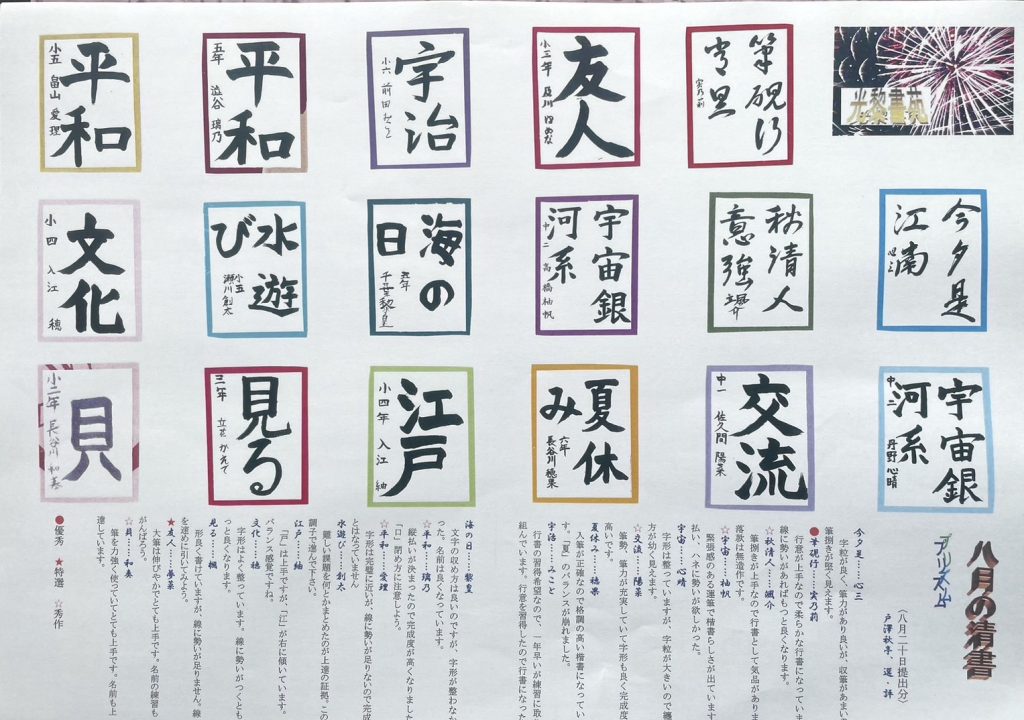 光黎書苑
筆硯行
実乃莉
友人
小三年
宇治
小六 前田
平和
五年 澁谷 璃乃
平和
小五 畠山 愛理
今夕是
江南
心三
秋清人
意強
颯介
宇宙銀
河系
中二 高橋柚帆
海の
日
五年
千葉黎皇
水遊
び
小五
瀬川創太
文化
小四 入江 穂
宇宙銀
河系
中二 丹野心晴
交流
中一 佐久間 陽菜
夏休
み
六年
長谷川穂果
江戸
小四年 入江 紬
見る
三年 立花 かえで
貝
小二年 長谷川 和奏
八月の清書
(八月二十日提出分)
戸澤秋亭 選・評
今夕是……心三
字粒が良く、筆力があり良いが、収筆があまい
筆捌きが堅く見えます。
●筆硯行……実乃莉
行意が上手なので柔らかな行書になっていま
線に勢いがあればもっと良くなります。
☆秋清人……颯介
筆捌きが上手なので行書として気品がありま
落款は無造作です。
☆宇宙……柚帆
緊張感のある運筆で楷書らしさが出ています
払い、ハネに勢いが欲しかった。
宇宙……心晴
字形は整っていますが、字粒が大きいので
方が幼く見えます。
☆交流……陽菜
筆勢、筆力が充実していて字形も良く完成度
高いです。
夏休み……穂果
入筆が正確なので格調の高い楷書になってい
す。「夏」のバランスが崩れました。
宇治……みこと
行書の習得希望なので、一年早いが練習に取
組んでいます。行意を習得したので行書になった
海の日……黎皇
文字の収め方は良いのですが、字形が整わなか
った。名前は良くなっています。
☆平和……璃乃
縦払いが決まったので完成度が高くなりました
「口」閉め方に注意しよう。
☆平和……愛理
字形は完璧に近いが、線に勢いが足りないので完成
とはなっていません。
水遊び……創太
難しい課題を何とかまとめたのが上達の証拠。この
調子で進んで下さい。
江戸……紬
「戸」は上手ですが、「江」が右に傾いています。
バランス感覚ですね。
文化……穂
字形はよく整っています。線に勢いがつくとも
っと良くなります。
見る……楓
形良く書けていますが、線に勢いが足りません。線
を速めに引いてみよう。
★友人……夢菜
大筆は伸びやかでとても上手です。名前の練習も
がんばろう。
☆貝……和奏
筆を力強く使っていてとても上手です。名前も上
達しています。
●優秀 ★特選 ☆秀作